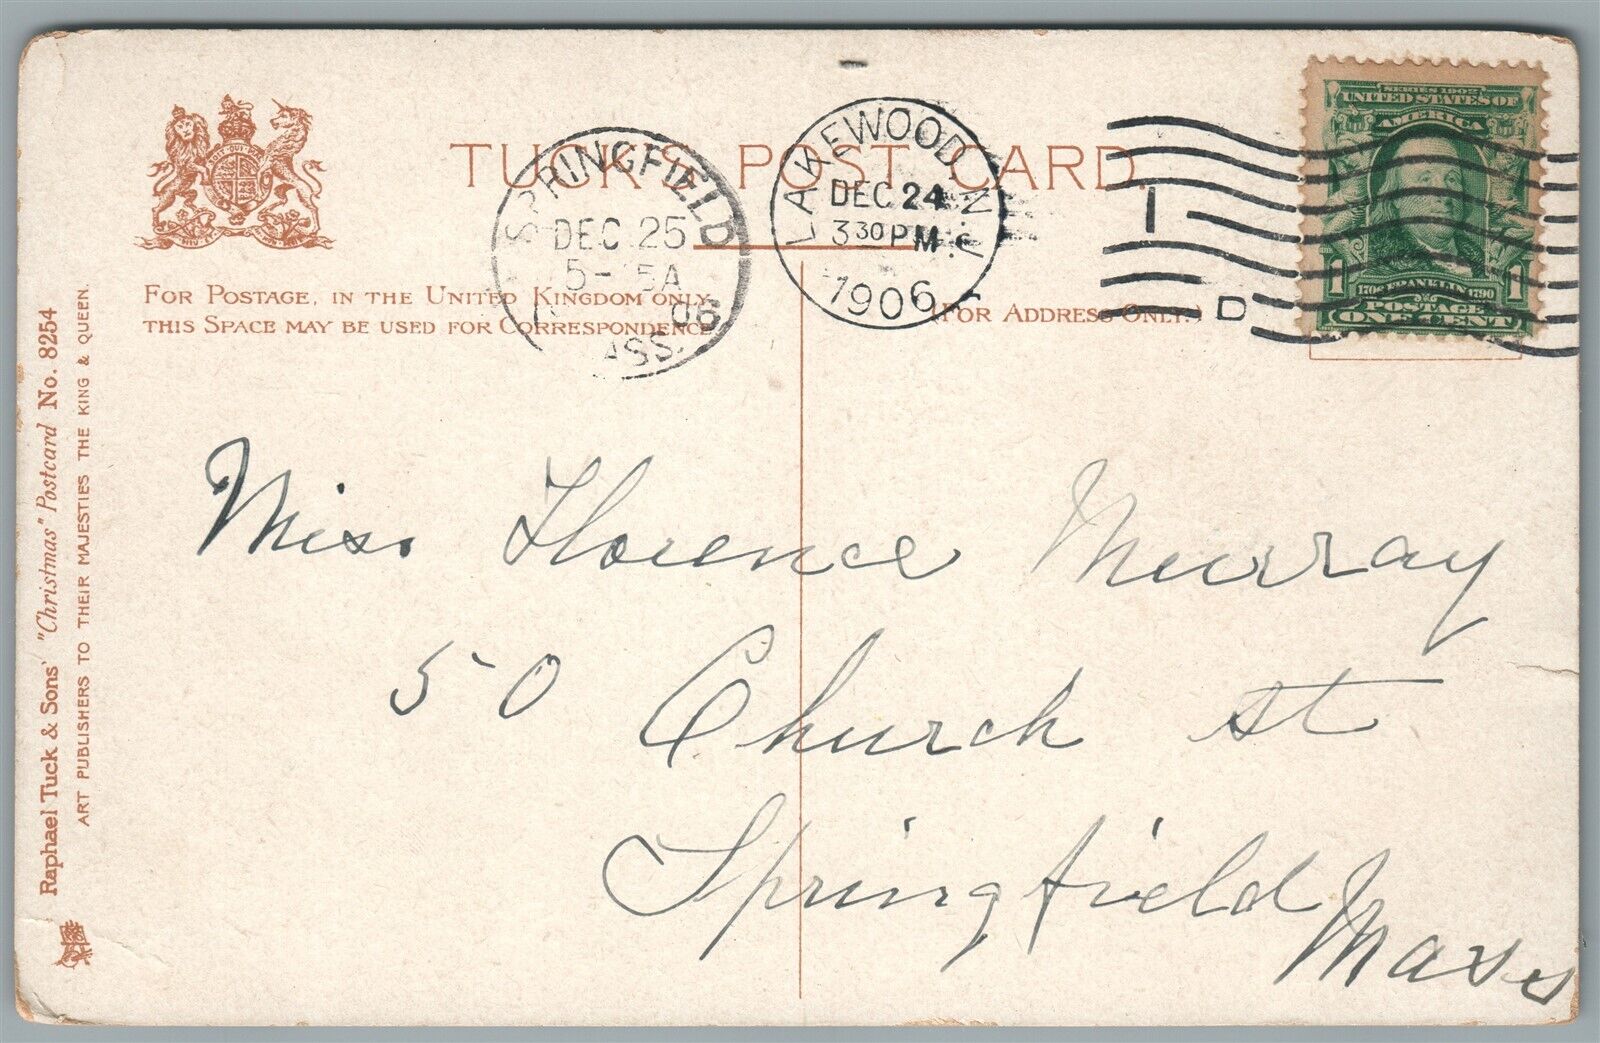 TUCK'S POST CARD.
FOR POSTAGE, IN THE UNITED KINGDOM ONLY,
THIS SPACE MAY BE USED FOR CORRESPONDENCE
(FOR ADDRESS ONLY.)
SPRINGFIELD
DEC 25
06
ASS.
LAKEWOOD, N.J.
DEC 24
3 30 PM
1906
1
D
SERIES 1902
UNITED STATES OF
AMERICA
1706 FRANKLIN 1790
1 POSTAGE 1
ONE CENT
Miss Florence Murray
50 Church st
Springfield
Mass
Raphael Tuck & Sons' "Christmas" Postcard No. 8254
ART PUBLISHERS TO THEIR MAJESTIES THE KING & QUEEN.